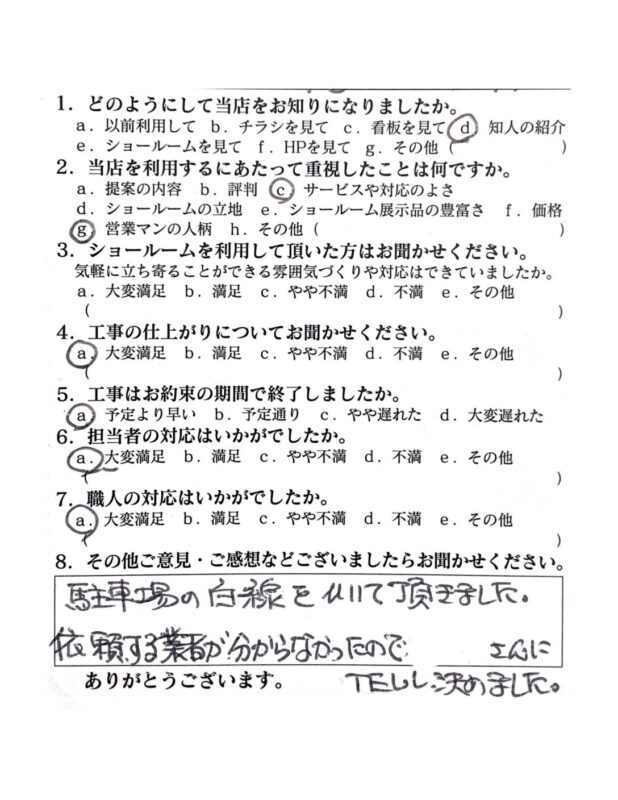 1．どのようにして当店をお知りになりましたか。
a．以前利用して b．チラシを見て c．看板を見て d 知人の紹介
e．ショールームを見て f．HPを見て g．その他（ ）
2．当店を利用するにあたって重視したことは何ですか。
a．提案の内容 b．評判 c サービスや対応のよさ
d．ショールームの立地 e．ショールーム展示品の豊富さ f．価格
g 営業マンの人柄 h．その他（ ）
3．ショールームを利用して頂いた方はお聞かせください。
気軽に立ち寄ることができる雰囲気づくりや対応はできていましたか。
a．大変満足 b．満足 c．やや不満 d．不満 e．その他
（ ）
4．工事の仕上がりについてお聞かせください。
a．大変満足 b．満足 c．やや不満 d．不満 e．その他
（ ）
5．工事はお約束の期間で終了しましたか。
a．予定より早い b．予定通り c．やや遅れた d．大変遅れた
6．担当者の対応はいかがでしたか。
a．大変満足 b．満足 c．やや不満 d．不満 e．その他
（ ）
7．職人の対応はいかがでしたか。
a．大変満足 b．満足 c．やや不満 d．不満 e．その他
（ ）
8．その他ご意見・ご感想などございましたらお聞かせください。
駐車場の白線を引いて頂きました。
依頼する業者が分からなかったので さんに
TELし決めました。
ありがとうございます。